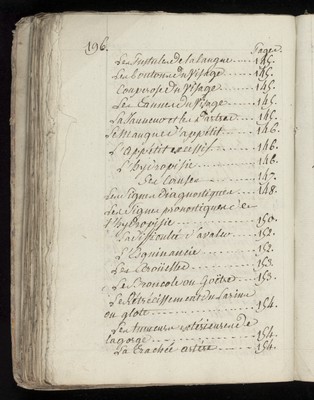 196.
Pages.
Les Pustules de la langue .... 145.
Les boutons du Visage .... 145.
Couperose du Visage .... 145.
Les Tannes du Visage .... 145.
La Vanneur et les Dartres .... 145.
Le Manque d'appetit .... 146.
L'appétit excessif .... 146.
L'hydropisie .... 146.
Ses Causes .... 147.
Les Signes diagnostiques .... 148.
Les Signes pronostiques de
l'hydropisie .... 150.
La difficultée d'avaler .... 152.
L'Esquinancie .... 152.
Les Ecrouelles .... 153.
Le Broncele ou Goëtre .... 153.
Le Rétrécissement du Larinx
ou glote .... 154.
Les tumeurs exterieures de
la gorge .... 154.
La trachée artère .... 154.